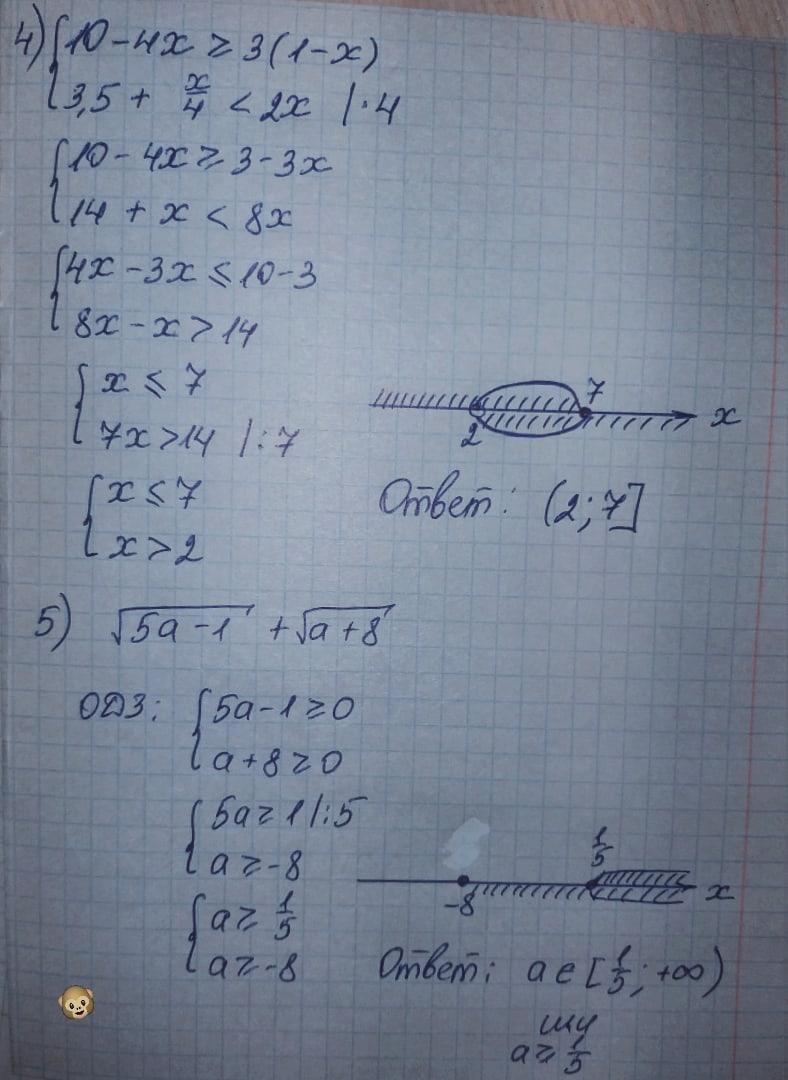 4) { 10 - 4x ≥ 3(1-x)
3,5 + x/4 < 2x | · 4
{ 10 - 4x ≥ 3 - 3x
14 + x < 8x
{ 4x - 3x ≤ 10 - 3
8x - x > 14
{ x ≤ 7
7x > 14 | : 7
{ x ≤ 7
x > 2
2 7 x
Ответ: (2; 7]
5) √(5a - 1) + √(a + 8)
ОДЗ: { 5a - 1 ≥ 0
a + 8 ≥ 0
{ 5a ≥ 1 | : 5
a ≥ -8
{ a ≥ 1/5
a ≥ -8
-8 1/5 x
Ответ: a ∈ [1/5; +∞)
или
a ≥ 1/5